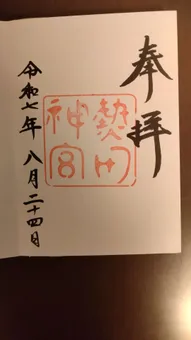 奉拝
熱田
神宮
令和七年 八月二十四日